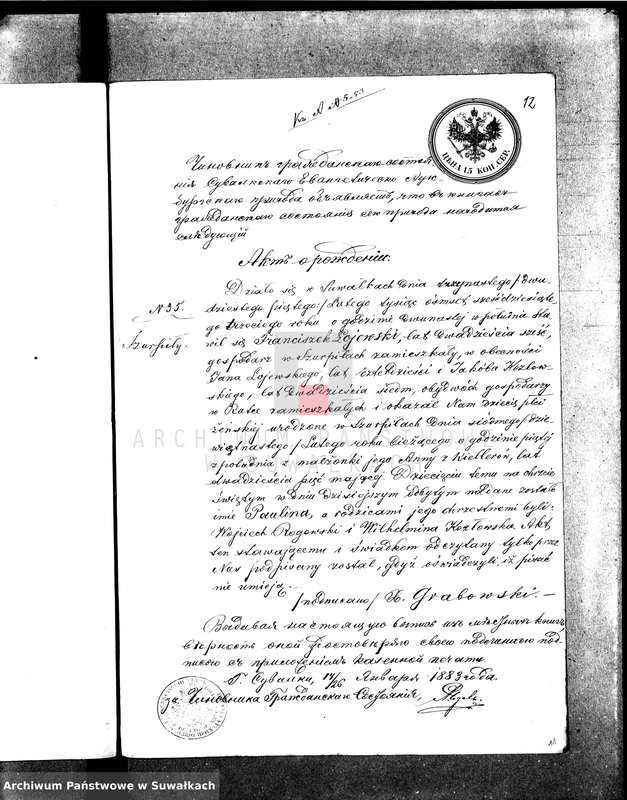 Къ А № 5-83
12
ЦѢНА 15 КОП. СЕР.
Чиновникъ гражданскаго состоя
нія Сувалкскаго Евангелическо Аугс
бургскаго прихода объявляетъ, что въ книгахъ
гражданскаго состоянія сего прихода находится
слѣдующій
Актъ о рожденіи.
N 35.
Szurpiły.
Działo się w Suwałkach dnia trzynastego /:dwu
dziestego piątego:/ Lutego tysiąc ośmset sześćdziesiąte
go trzeciego roku o godzinie dwunastej w południe sta
wił się Franciszek Łojewski, lat dwadzieścia sześć,
gospodarz w Szurpiłach zamieszkały, w obecności
Jana Łojewskiego, lat czterdzieści i Jakóba Kozłow
skiego, lat dwadzieścia siedm, obydwóch gospodarzy
w zamieszkałych i okazał Nam dziecię płci
żeńskiej urodzone w Szurpiłach dnia siódmego /:dzie
więtnastego:/ Lutego roku bieżącego o godzinie piątej
z południa z małżonki jego Anny z lat
dwadzieścia pięć mającej. Dziecięciu temu na chrzcie
świętym w dniu dzisiejszym odbytym nadane zostało
imie Paulina, a rodzicami jego chrzestnemi byli:
Wojciech Rogowski i Wilhelmina Kozłowska. Akt
ten stawającemu i świadkom odczytany tylko przez
Nas podpisany został, gdyż oświadczyli, iż pisać
nie umieją. –
/podpisano/ X. Grabowski. –
Выдавая настоящую выпись изъ мѣстныхъ книгъ
вѣрность оной удостовѣряю своею подписью
съ приложеніемъ казенной печати
Г. Сувалки, 14/26 Января 1883 года.
за Чиновника Гражданскаго Состоянія,
ARCHIWUM PAŃSTWOWE
W SUWAŁKACH
Archiwum Państwowe w Suwałkach